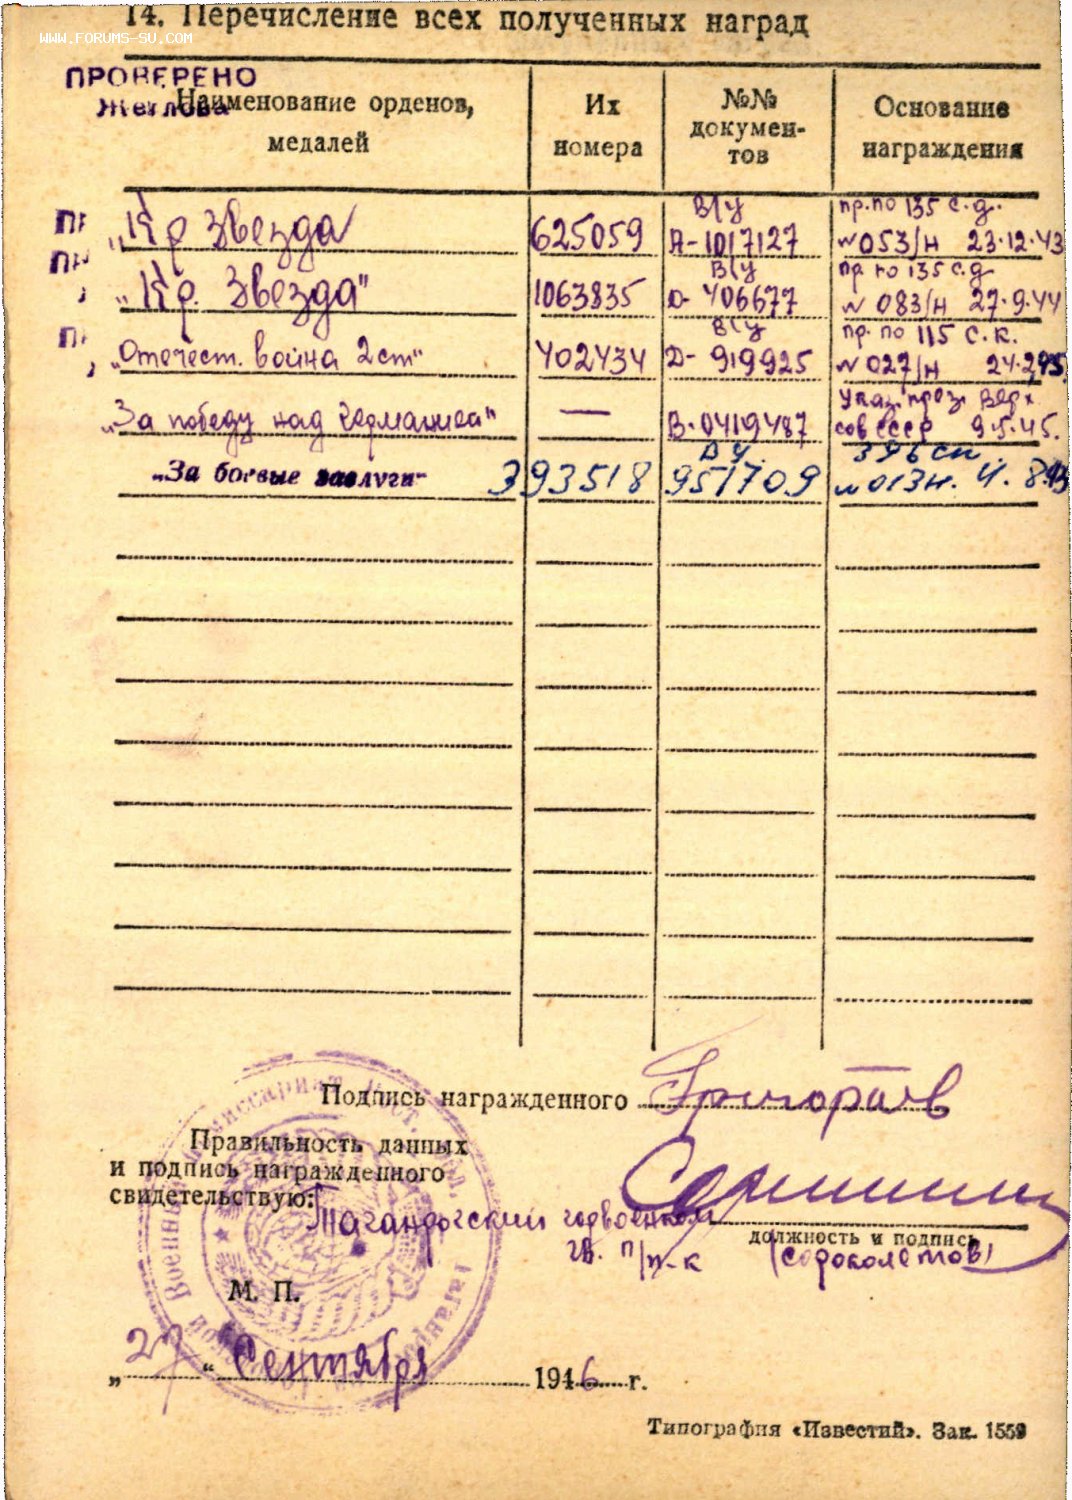 14. Перечисление всех полученных наград
WWW.FORUMS-SU.COM
ПРОВЕРЕНО
Жеглова
Наименование орденов, медалей
Их номера
№№ докумен-тов
Основание награждения
„Кр Звезда 625059 В/У А-1017127 пр. по 135 с.д. №053/н 23.12.43
„Кр. Звезда" 1063835 В/У D-406677 пр по 135 с.д №083/н 27.9.44
„Отечест. война 2 ст" 402434 В/У D-919925 пр. по 115 с.к. №027/н 24.2.45.
„За победу над Германией" — В-0419487 Указ. през. Верх сов СССР 9.5.45.
„За боевые заслуги" 393518 ВУ 951709 396 сп. №013н. 4.8.43
Подпись награжденного Григорьев
Правильность данных
и подпись награжденного
свидетельствую:
Таганрогский горвоенком
гв. п/п-к
должность и подпись
(Сороколетов)
М. П.
„27" Сентября 1946 г.
Типография «Известий». Зак. 1559